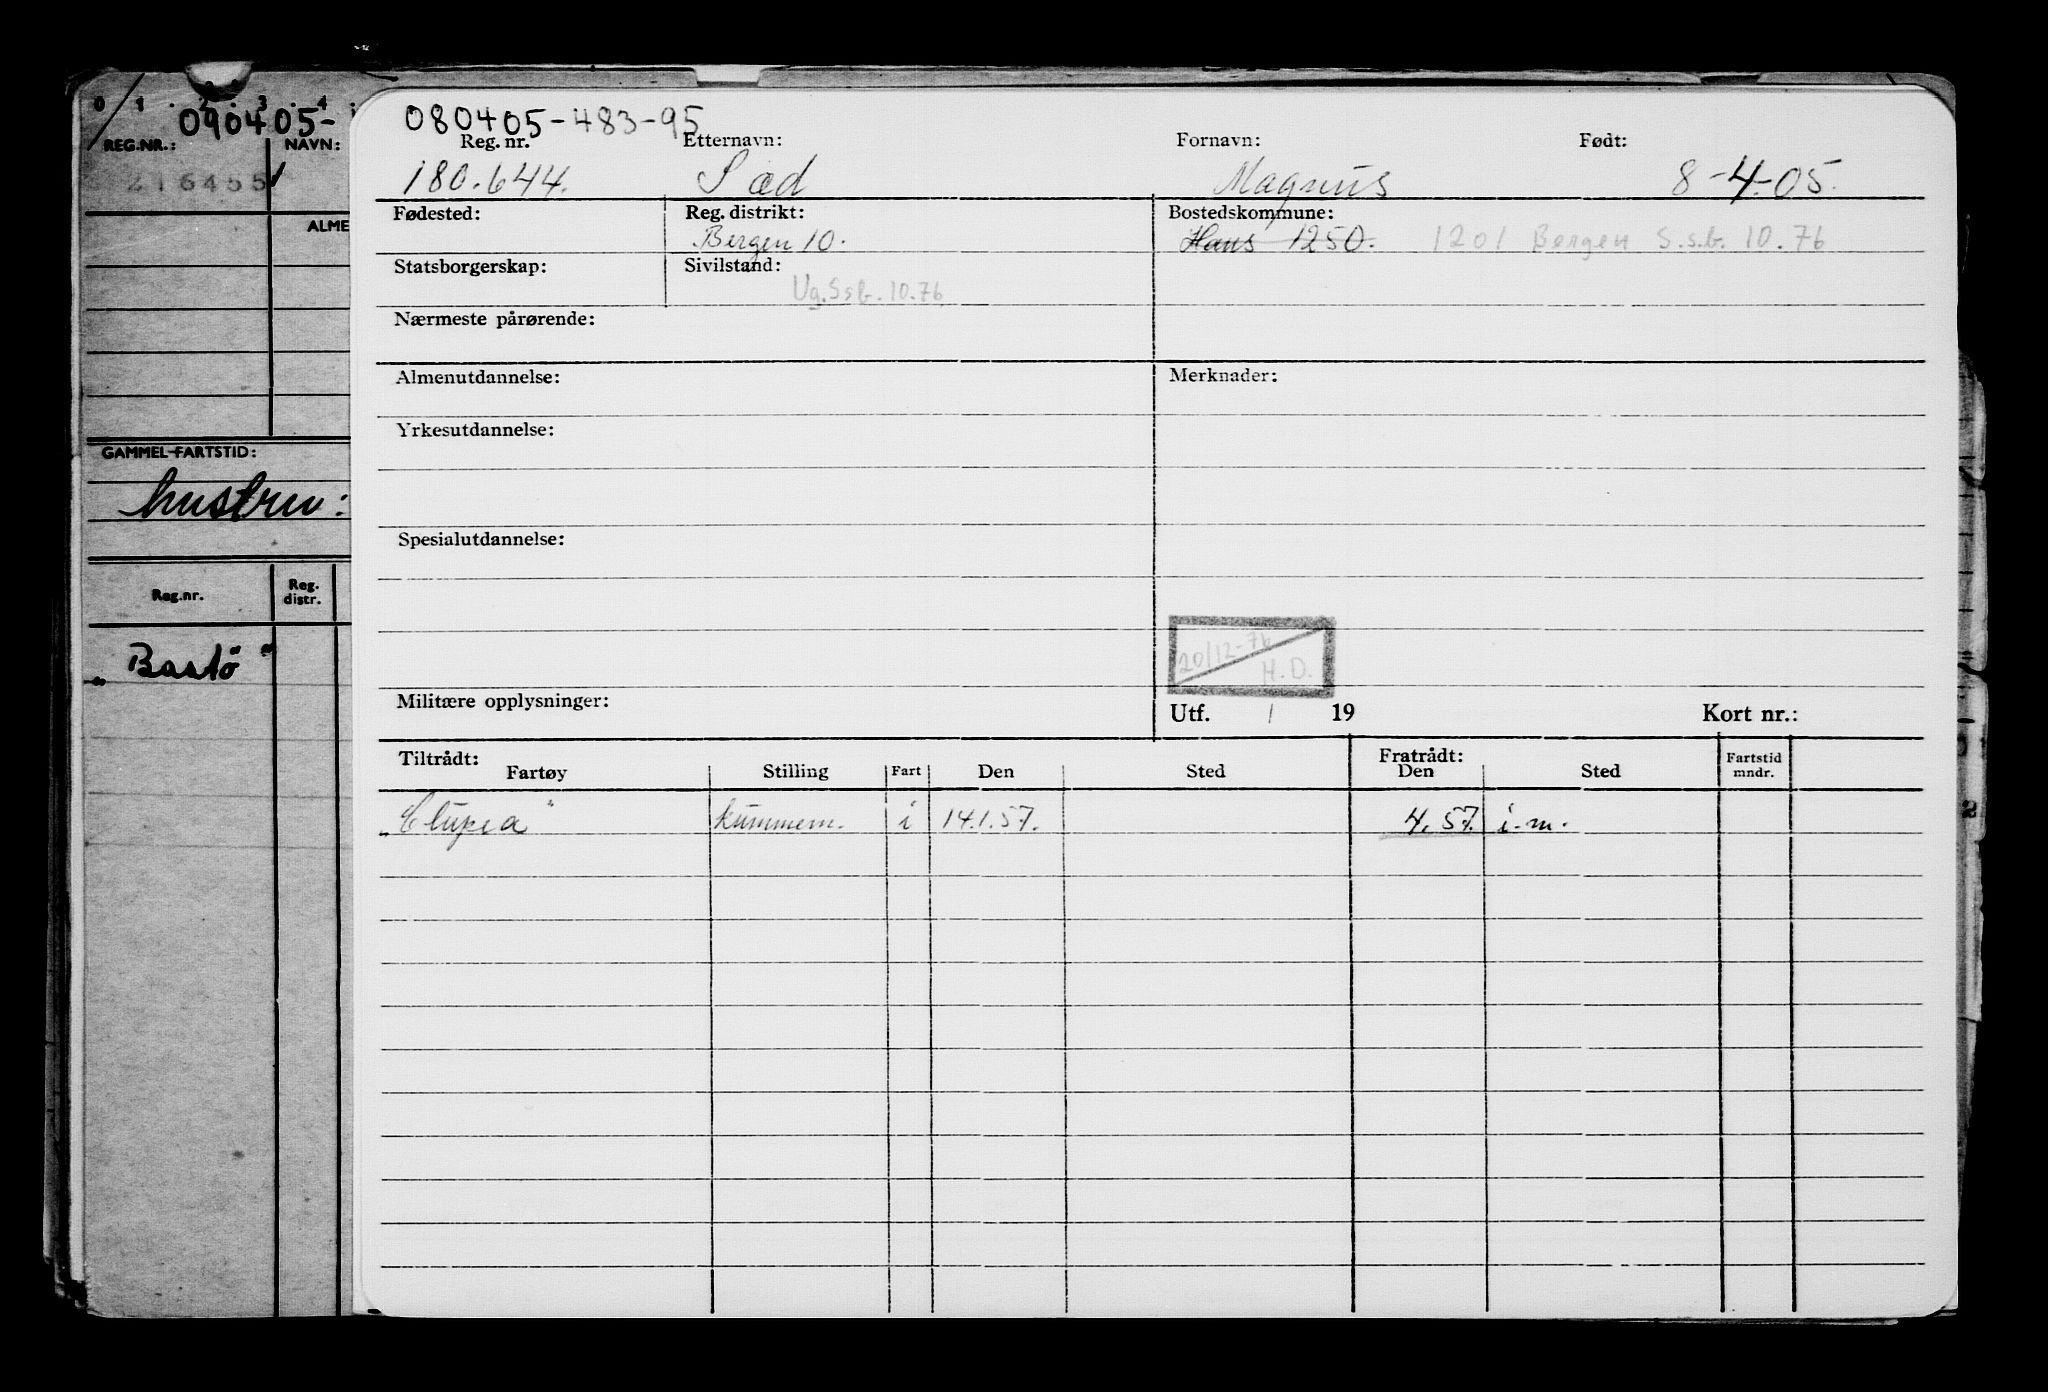 0 1 . 2 . 3 . 4
090405-
REG.NR.: NAVN:
216455
ALME
GAMMEL FARTSTID:
hustru:
Reg.nr. Reg. distr.
"Bastö"
080405-483-95
Reg. nr. Etternavn: Fornavn: Født:
180.644. Sæd Magnus 8-4-05.
Fødested: Reg. distrikt: Bostedskommune:
Bergen 10. Haus 1250. 1201 Bergen S.s.b. 10.76
Statsborgerskap: Sivilstand:
Ug. Ssb. 10.76
Nærmeste pårørende:
Almenutdannelse: Merknader:
Yrkesutdannelse:
Spesialutdannelse:
20/12-76
H.D.
Militære opplysninger: Utf. / 19 Kort nr.:
Tiltrådt: Fratrådt:
Fartøy Stilling Fart Den Sted Den Sted Fartstid mndr.
i 14.1.57. 4.57. i.m.